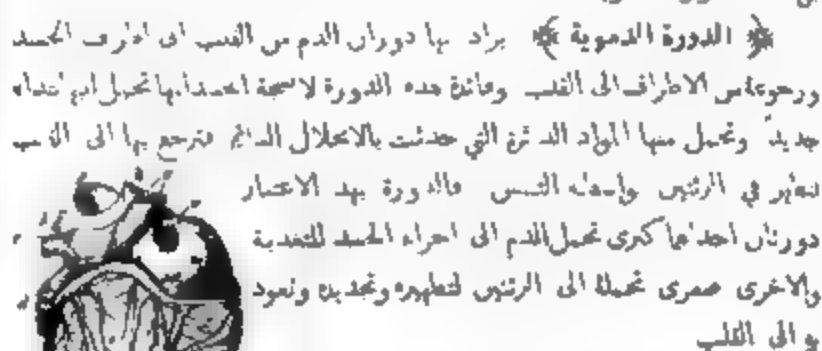 ﴿ الدورة الدموية ﴾ يراد بها دوران الدم من القلب الى اطراف الجسد
ورجوعه من الاطراف الى القلب وفائدة هذه الدورة لانسجة الجسد انها تحمل اليها غذاء
جديداً وتحمل منها المواد الدائرة التي حدثت بالانحلال الدائم فترجع بها الى القلب
فتطهر في الرئتين بواسطة التنفس فالدورة بهذ الاعتبار
دورتان احداهما كبرى تحمل الدم الى اجزاء الجسد للتغذية
والاخرى صغرى تحملهُ الى الرئتين لتطهيره وتجديده وتعود
بهِ الى القلب